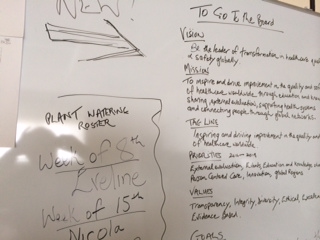 NEW!
PLANT WATERING
ROSTER
Week of 8th
Eveline
Week of 15th
Nicola
To Go To The Board
VISION
Be the leader of transformation in healthcare quality
& safety globally
MISSION
To inspire and drive improvement in the quality and safety
of healthcare worldwide through education and knowledge
sharing, external evaluation, supporting health systems
and connecting people through global networks.
TAG LINE
Inspiring and driving improvement in the quality and
of healthcare worldwide
PRIORITIES
External evaluation, Events, Education and
Person Centred Care, Innovation, global Regions
VALUES
Transparency, Integrity, Diversity, Ethical,
Evidence based.
GOALS